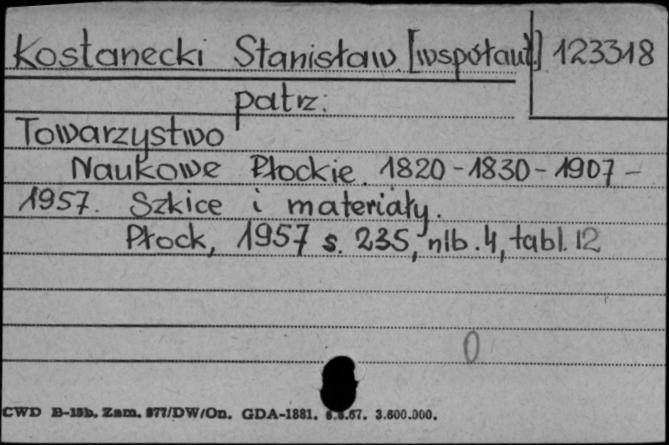 Kostanecki Stanisław [współaut.] 123318
patrz:
Towarzystwo
Naukowe Płockie. 1820-1830-1907-
1957. Szkice i materiały.
Płock, 1957 s. 235, nlb. 4, tabl. 12
0
CWD B-15b. Zam. 977/DW/On. GDA-1881. .67. 3.600.000.